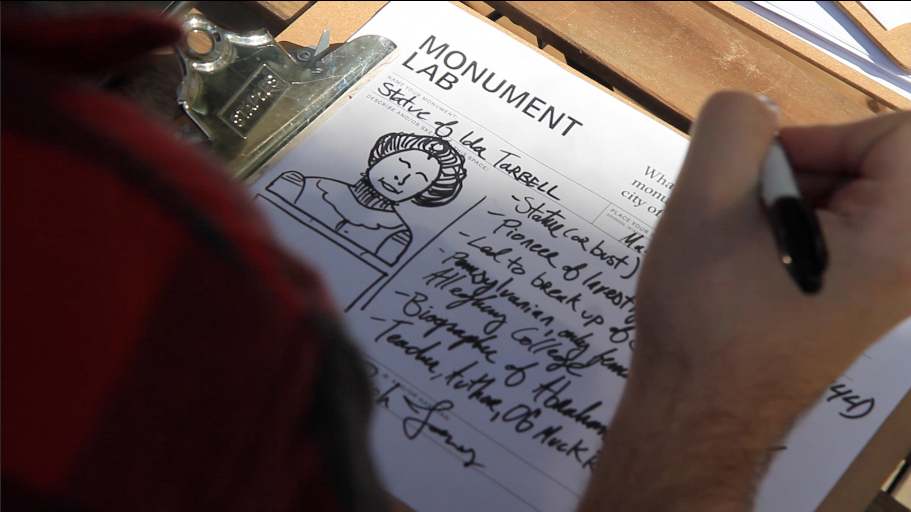 MONUMENT
LAB
NAME YOUR MONUMENT
Statue of Ida TARBELL
DESCRIBE AND/OR SKE SPACE
Wha
monu
city of
PLACE YOUR
Ma
- Statue (or bust)
- Pioneer of Invest
- Led to break up of
- Pennsylvanian, only fem
Allegheny College
- Biographer of Abraham
- Teacher, Author, OG Muckr
44)